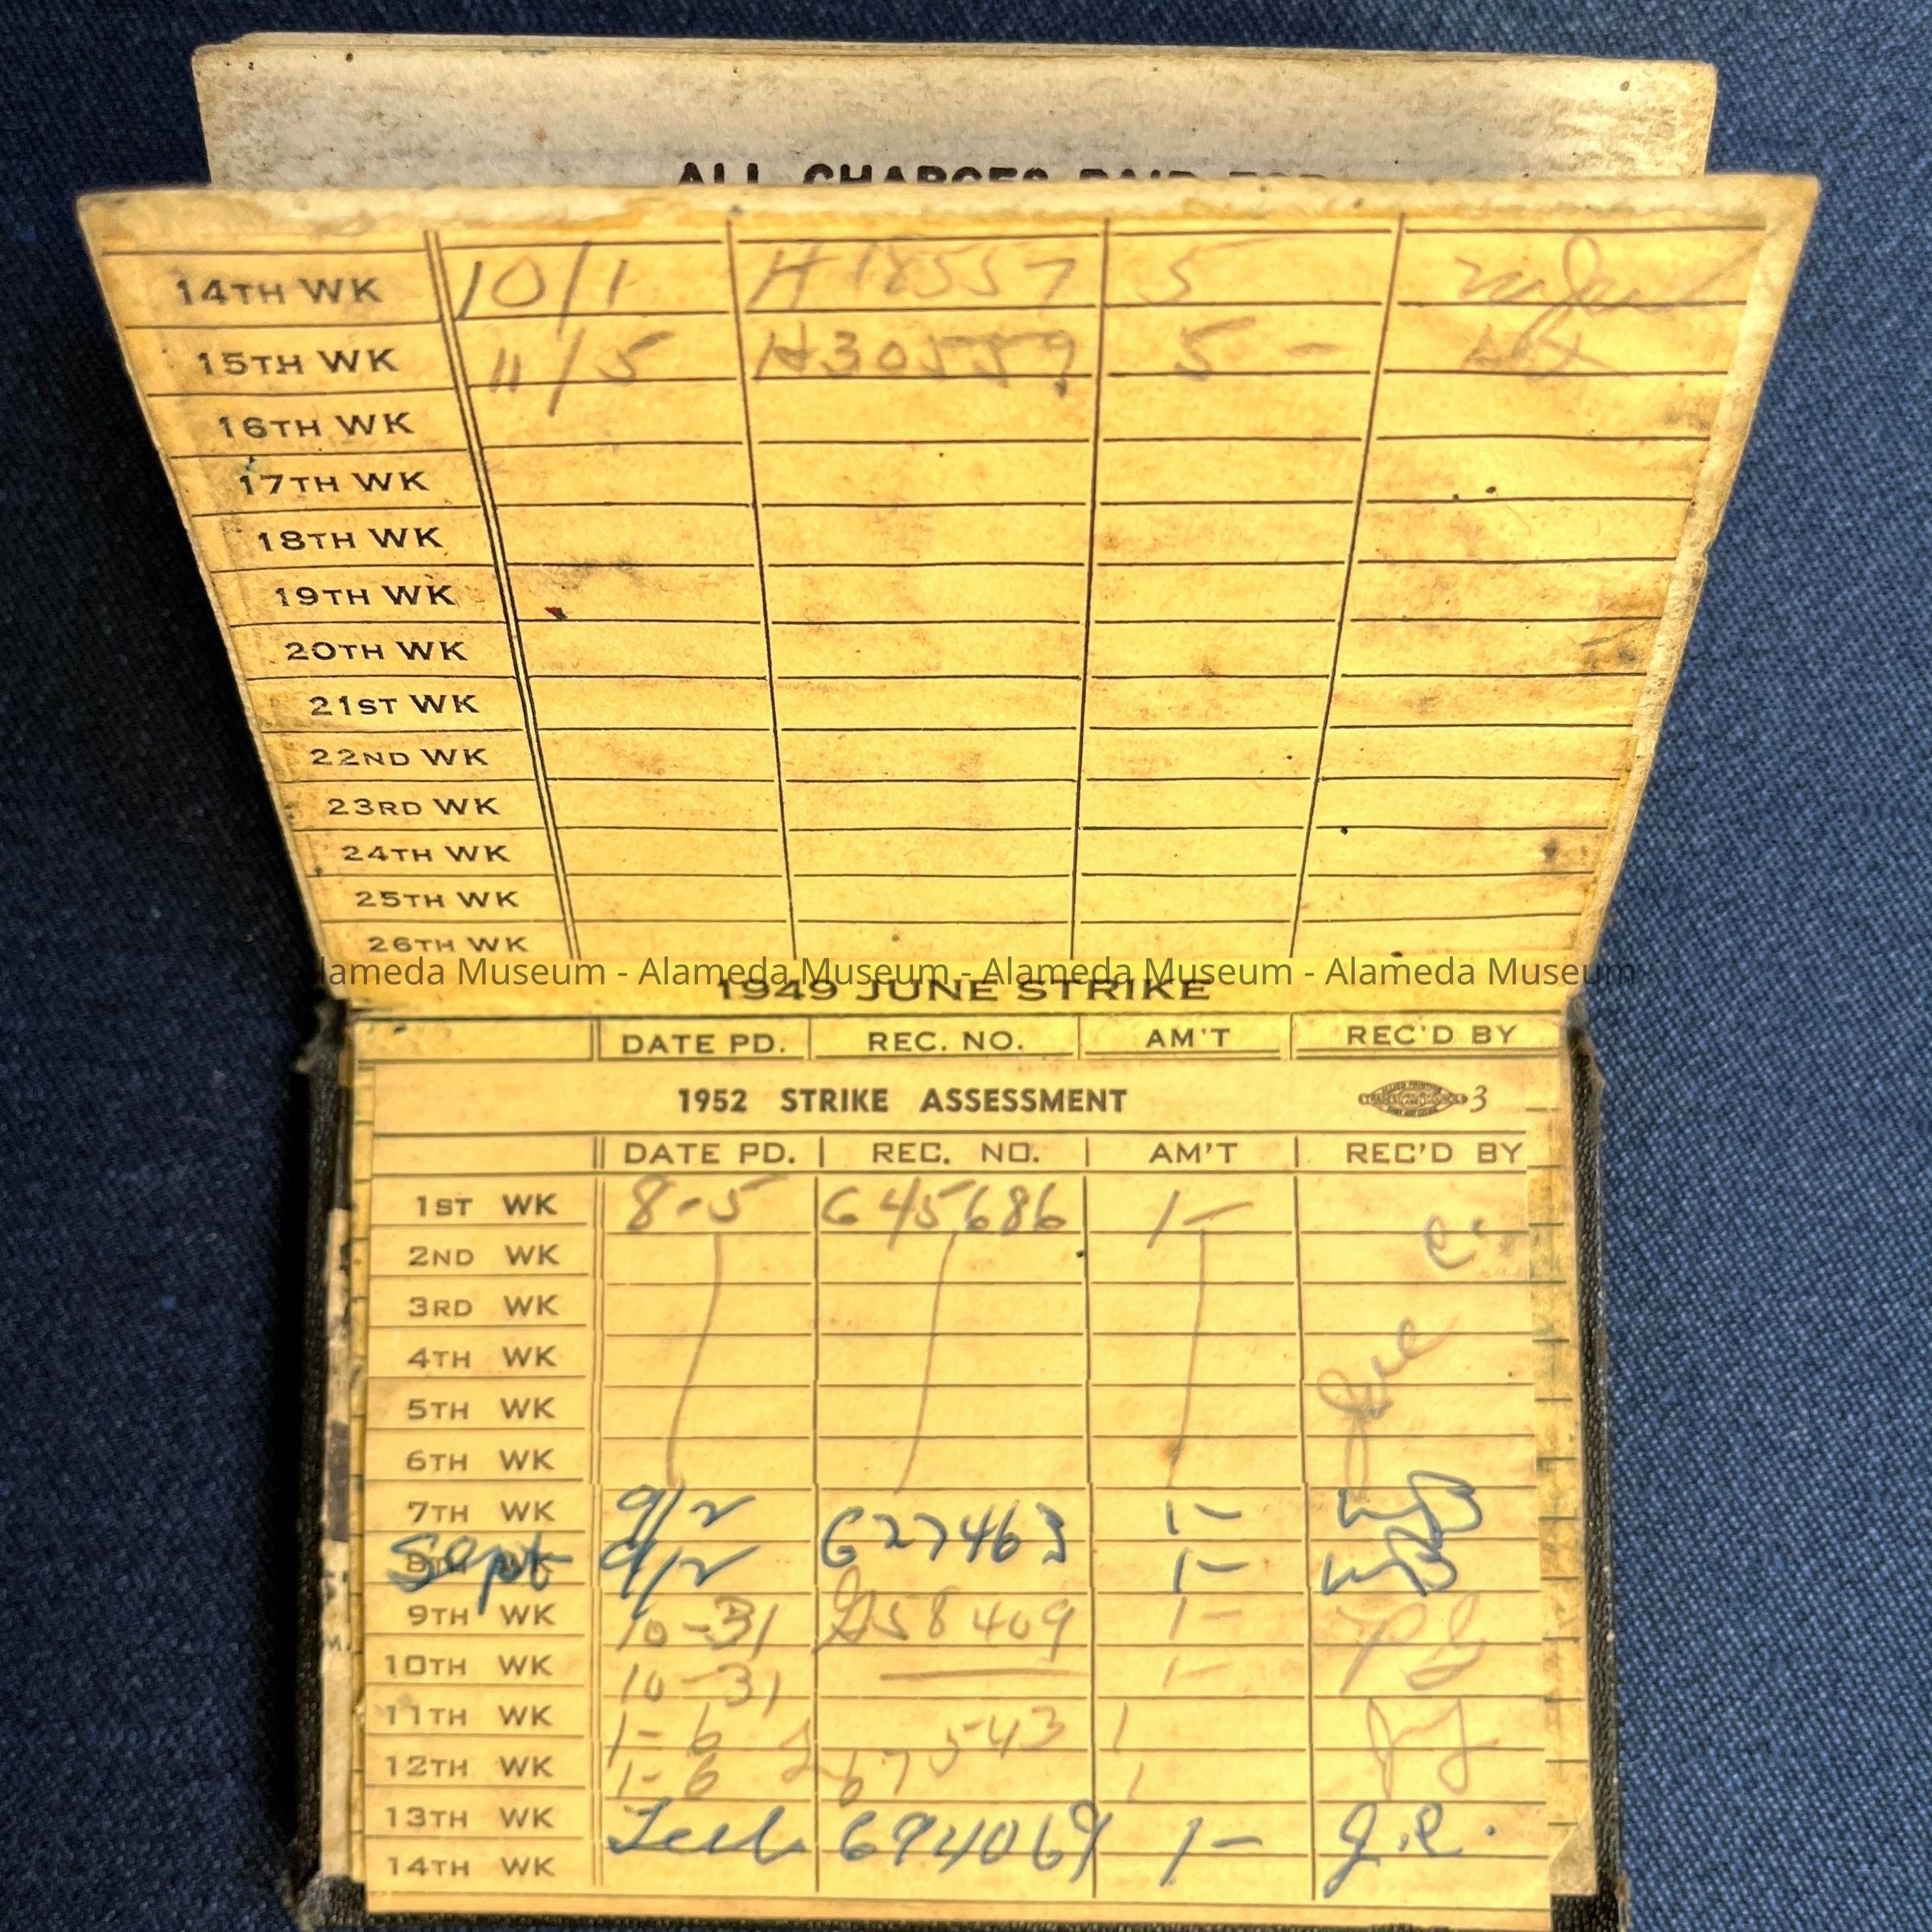 ALL CHARGES PAID FOR
14TH WK 10/1 H18557 5
15TH WK 11/5 H30559 5 -
16TH WK
17TH WK
18TH WK
19TH WK
20TH WK
21ST WK
22ND WK
23RD WK
24TH WK
25TH WK
26TH WK
Alameda Museum - Alameda Museum - Alameda Museum - Alameda Museum
1949 JUNE STRIKE
DATE PD. REC. NO. AM'T REC'D BY
1952 STRIKE ASSESSMENT 3
DATE PD. REC. NO. AM'T REC'D BY
1ST WK 8-5 G45686 1-
2ND WK
3RD WK
4TH WK
5TH WK
6TH WK
Joe C.
7TH WK 9/2 G27463 1- WB
Sept 9/2 1- WB
9TH WK 10-31 G58409 1-
10TH WK 10-31 1-
11TH WK 1-6 543 1
12TH WK 1-6 67 1
13TH WK 694069 1- J.C.
14TH WK